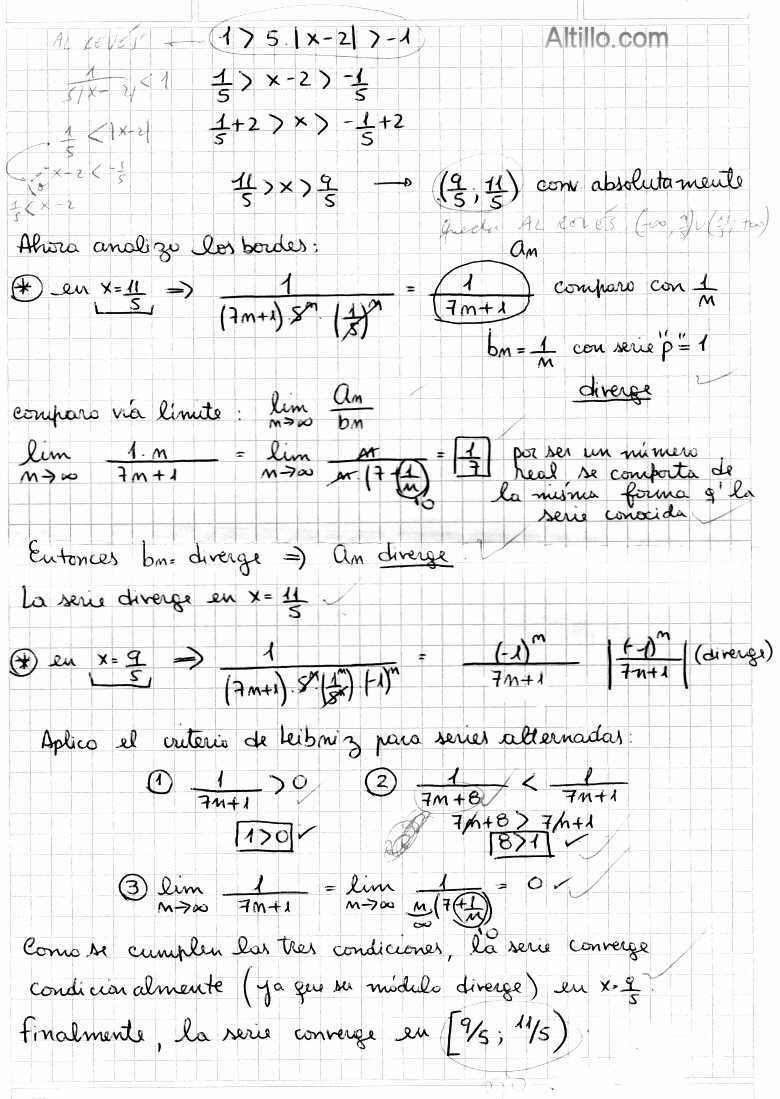 AL REVÉS ← 1 > 5.|x-2| > -1
Altillo.com
1/(5|x-2|) < 1
1/5 > x-2 > -1/5
1/5 < |x-2|
1/5+2 > x > -1/5+2
x-2 < -1/5
1/5 < x-2
11/5 > x > 9/5 → (9/5; 11/5) conv absolutamente
Queda AL REVÉS (-∞, 9/5) ∪ (11/5, +∞)
Ahora analizo los bordes:
an
* en x=11/5 ⇒ 1/((7n+1).5^n.(1/5)^n) = 1/(7n+1) comparo con 1/n
bn = 1/n con serie "p" = 1
diverge
comparo vía límite: lim n→∞ an/bn
lim n→∞ 1.n/(7n+1) = lim n→∞ n/(n.(7+1/n)) = 1/7 por ser un número
0 real se comporta de
la misma forma q' la
serie conocida
Entonces bn = diverge ⇒ an diverge
La serie diverge en x = 11/5
* en x=9/5 ⇒ 1/((7n+1).5^n.(1^n/5^n).(-1)^n) = (-1)^n/(7n+1) |(-1)^n/(7n+1)| (diverge)
Aplico el criterio de Leibniz para series alternadas:
① 1/(7n+1) > 0 ② 1/(7n+8) < 1/(7n+1)
7n+8 > 7n+1
1>0 ✓ 8>1 ✓
③ lim n→∞ 1/(7n+1) = lim n→∞ 1/(n(7+1/n)) = 0 ✓
∞ 0
Como se cumplen las tres condiciones, la serie converge
condicionalmente (ya que su módulo diverge) en x=9/5
finalmente, la serie converge en [9/5; 11/5)